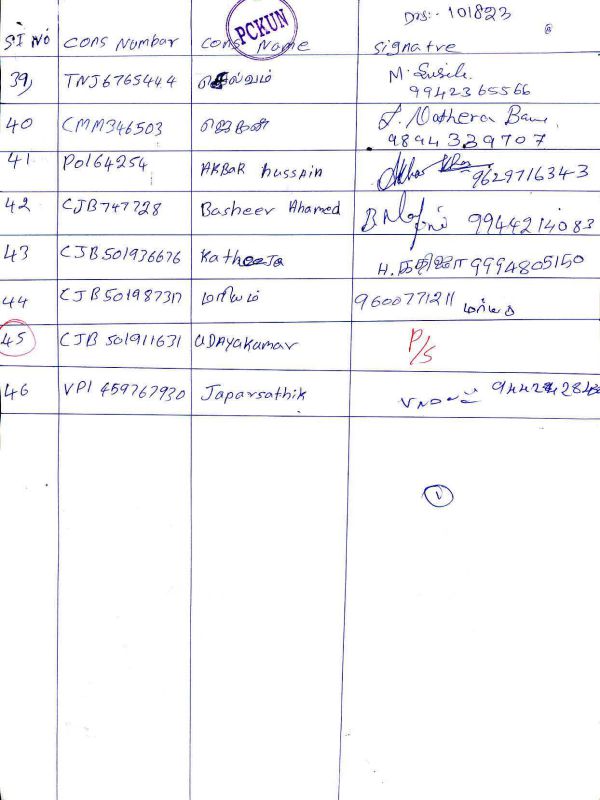 DRS:- 101823
PCKUN
SI NO cons Numbar cons Name signatre
39) TNJ6765444 செல்வம் M. Susila
9942365566
40 CMM346503 J. Nathera Banu
9894339707
41 PO164254 AKBAR hussain 9629716343
42 CJB747728 Basheer Ahamed 9944214083
43 CJB501936676 Katheeja H. கதிஜா 9994805150
44 CJB501987317 மரியம் 9600771211
45 CJB 501911631 UDAyakumar P/S
46 VPI 459767930 Japarsathik